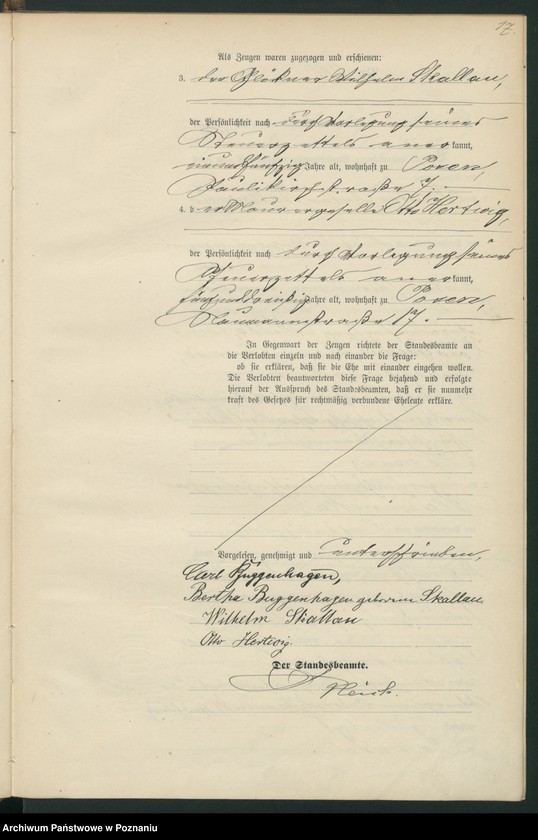 17.
Als Zeugen waren zugezogen und erschienen:
3. der Glöckner Wilhelm Skallau,
der Persönlichkeit nach durch Vorlegung seines
Steuerzettels aner kannt,
neunundfünfzig Jahre alt, wohnhaft zu Posen,
Paulikirchstraße 7.
4. der Maurergeselle Otto Hertwig,
der Persönlichkeit nach durch Vorlegung seines
Steuerzettels aner kannt,
fünfunddreißig Jahre alt, wohnhaft zu Posen,
Naumannstraße 17.
In Gegenwart der Zeugen richtete der Standesbeamte an
die Verlobten einzeln und nach einander die Frage:
ob sie erklären, daß sie die Ehe mit einander eingehen wollen.
Die Verlobten beantworteten diese Frage bejahend und erfolgte
hierauf der Ausspruch des Standesbeamten, daß er sie nunmehr
kraft des Gesetzes für rechtmäßig verbundene Eheleute erkläre.
Vorgelesen, genehmigt und unterschrieben,
Carl Buggenhagen,
Bertha Buggenhagen geborene Skallau,
Wilhelm Skallau
Otto Hertwig.
Der Standesbeamte.
Archiwum Państwowe w Poznaniu